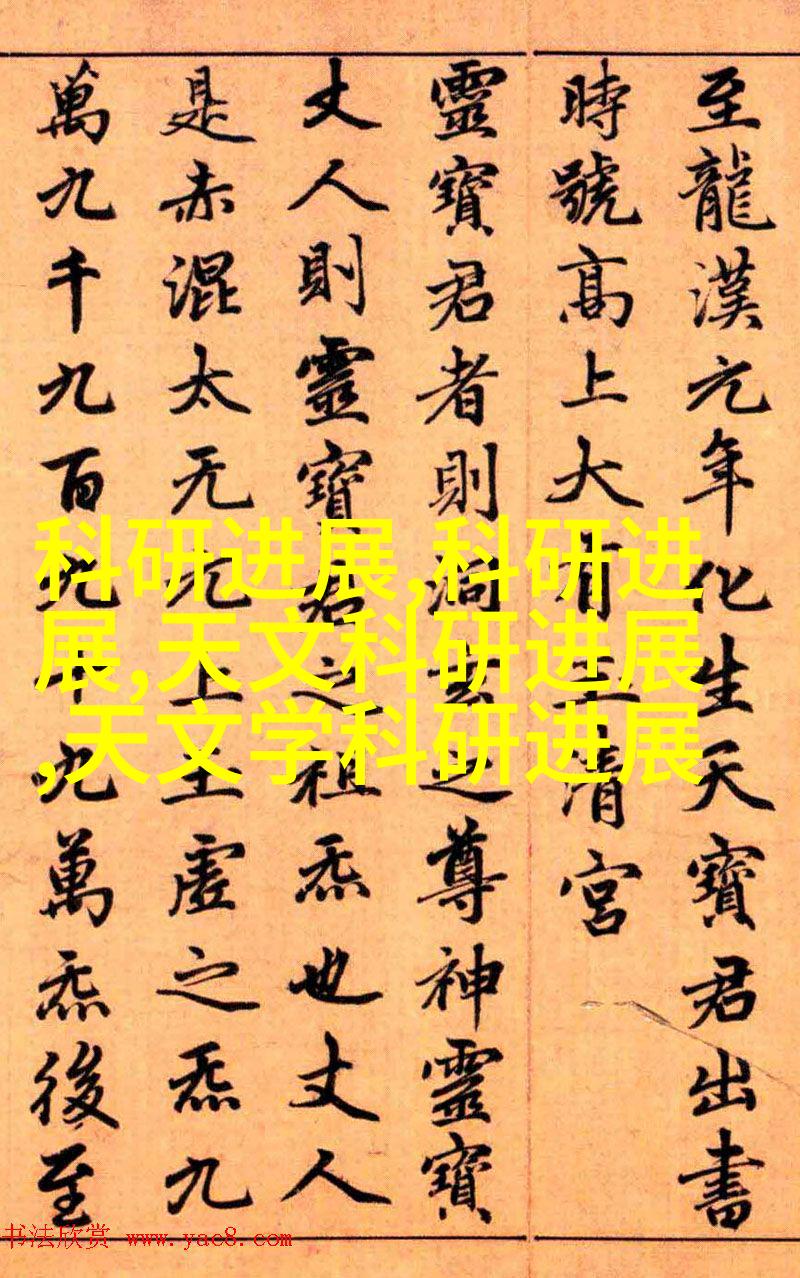 至龍漢元年化生天寶君出書
時號髙上大有玉清宮
靈寶君者則洞玄之尊神靈寶
丈人則靈寶君之祖炁也丈人
是赤混太无元上玉虚之炁九
萬九千九百九十九萬炁後至
科研进展,科研进
展,天文科研进展
,天文学科研进展
书法欣赏 www.yac8.com